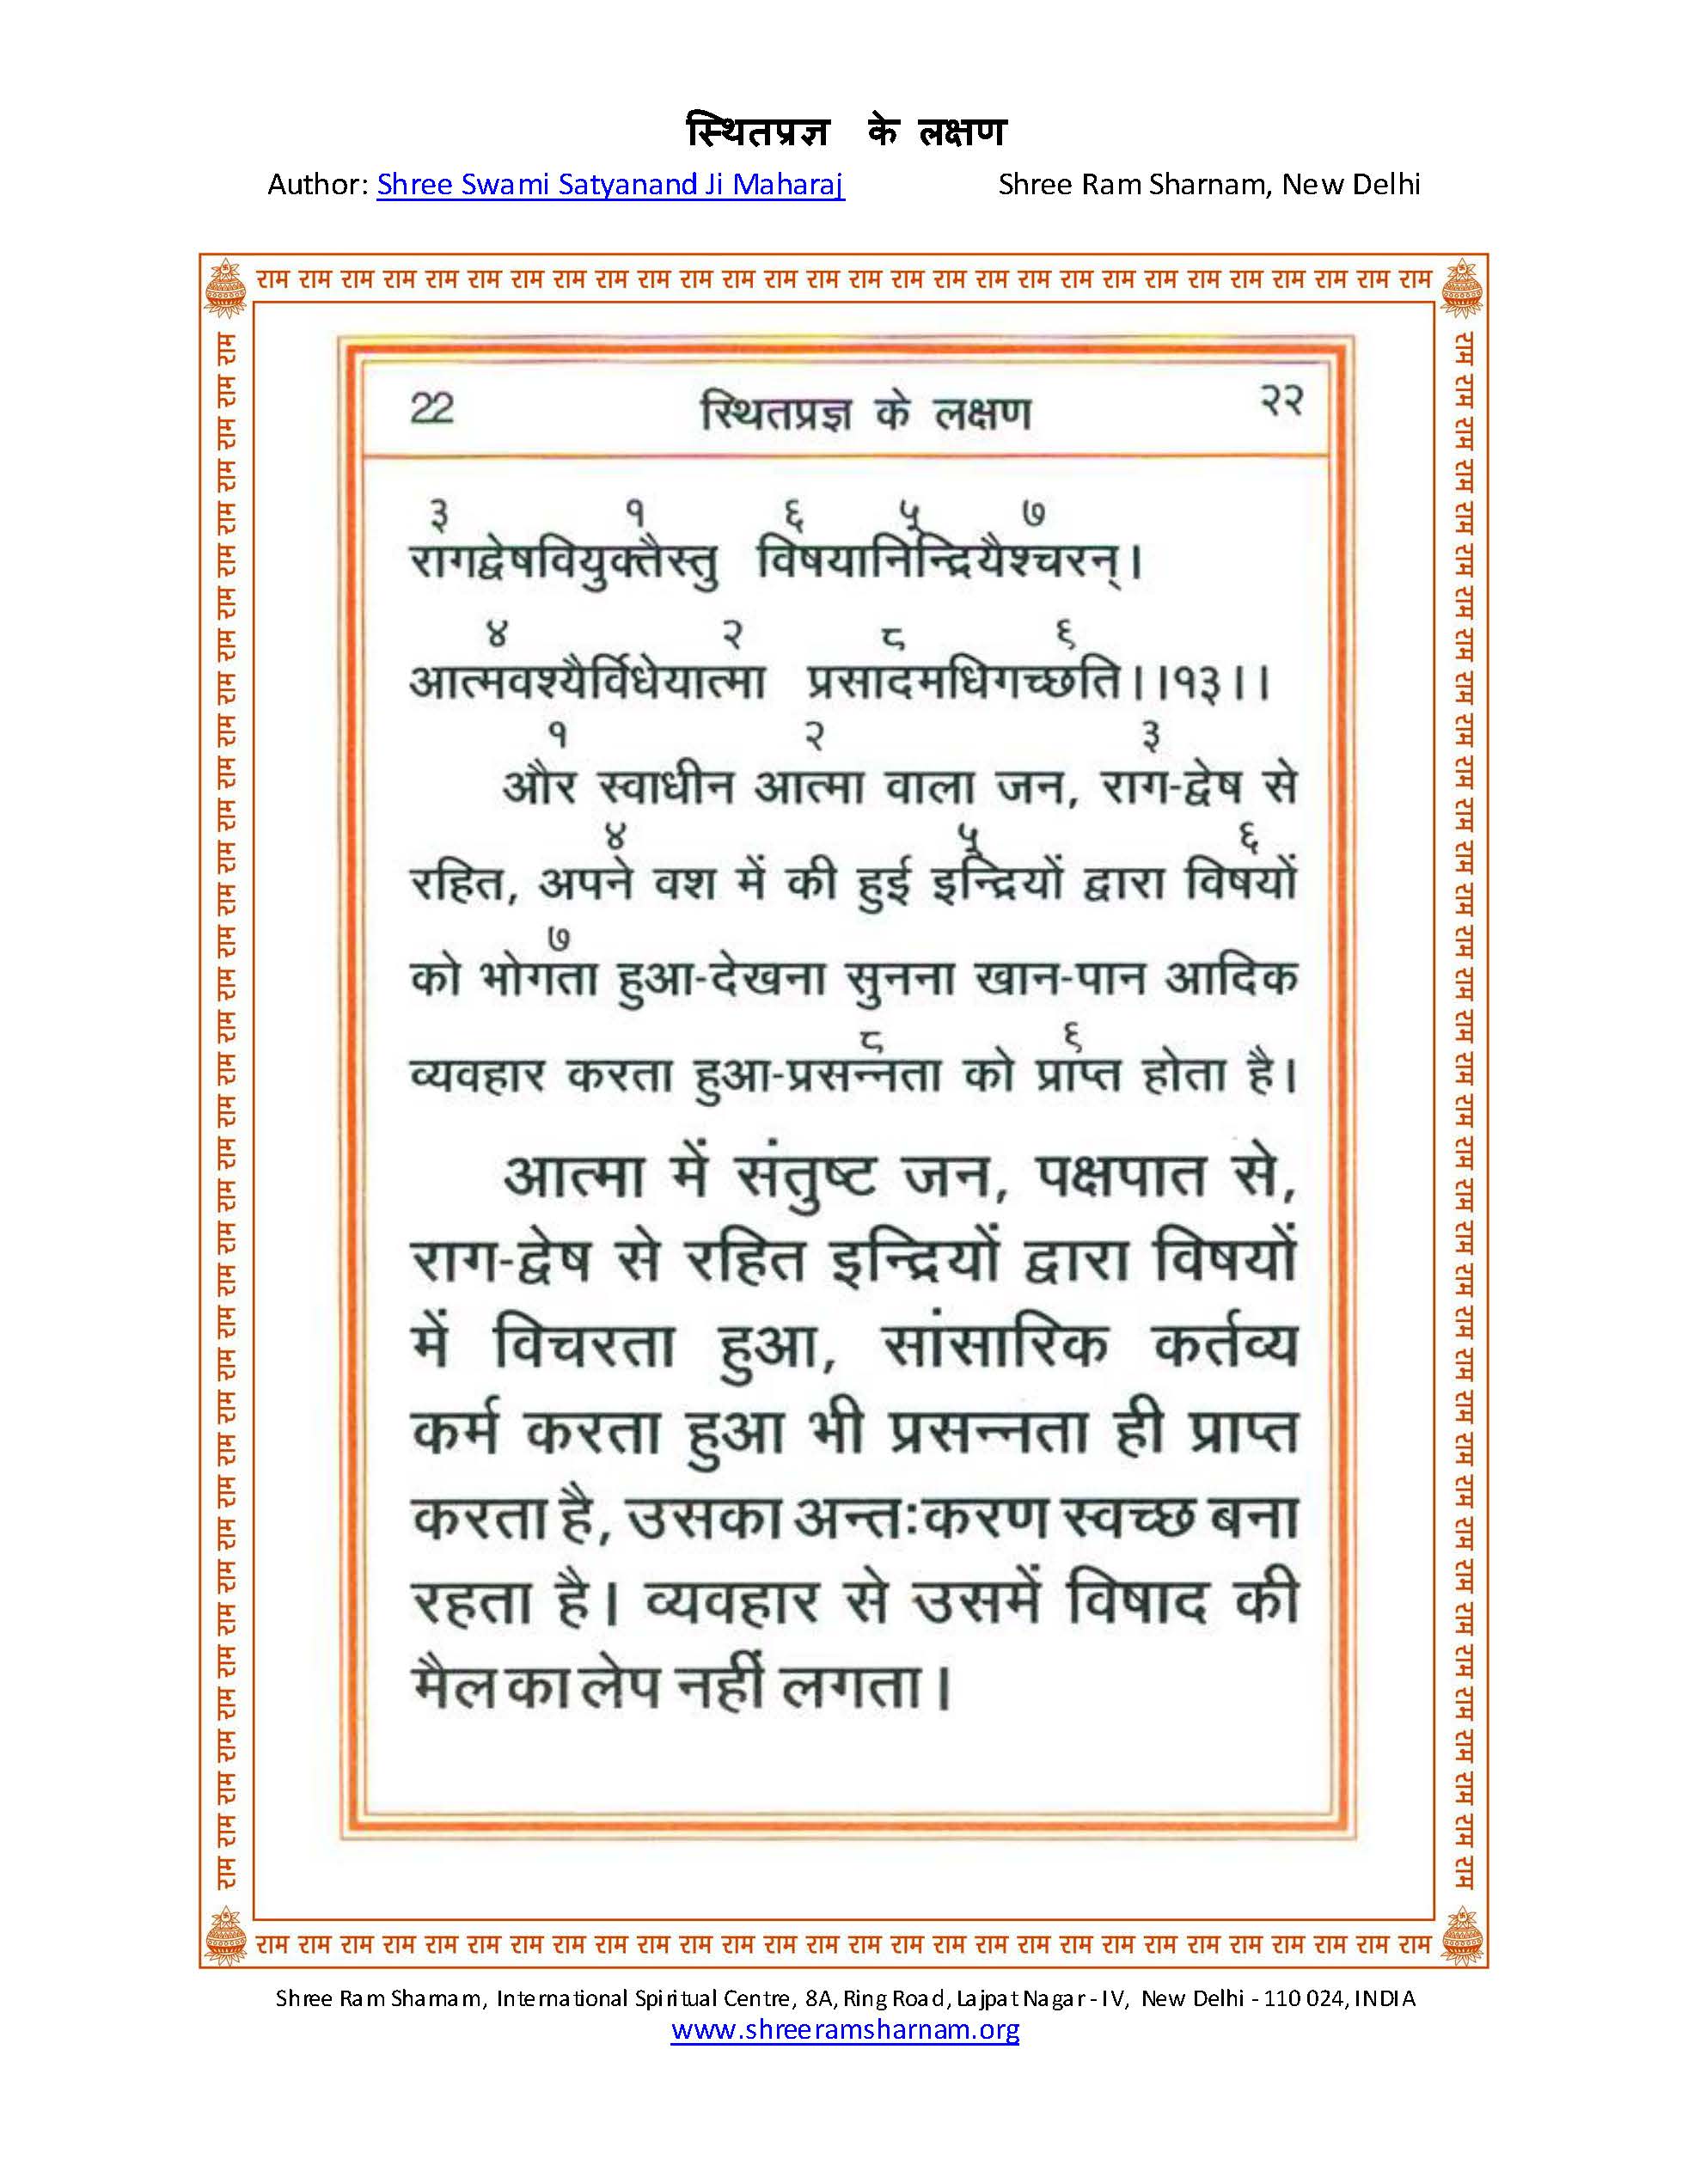 स्थितप्रज्ञ के लक्षण
Author: Shree Swami Satyanand Ji Maharaj Shree Ram Sharnam, New Delhi
राम राम राम राम राम राम राम राम राम राम राम राम राम राम राम राम राम राम राम राम राम राम राम राम राम राम राम राम
22 स्थितप्रज्ञ के लक्षण २२
३ १ ६ ५ ७
रागद्वेषवियुक्तैस्तु विषयानिन्द्रियैश्चरन्।
४ २ ८ ९
आत्मवश्यैर्विधेयात्मा प्रसादमधिगच्छति।।१३।।
१ २ ३
और स्वाधीन आत्मा वाला जन, राग-द्वेष से
४ ५ ६
रहित, अपने वश में की हुई इन्द्रियों द्वारा विषयों
७
को भोगता हुआ-देखना सुनना खान-पान आदिक
८ ९
व्यवहार करता हुआ-प्रसन्नता को प्राप्त होता है।
आत्मा में संतुष्ट जन, पक्षपात से,
राग-द्वेष से रहित इन्द्रियों द्वारा विषयों
में विचरता हुआ, सांसारिक कर्तव्य
कर्म करता हुआ भी प्रसन्नता ही प्राप्त
करता है, उसका अन्तःकरण स्वच्छ बना
रहता है। व्यवहार से उसमें विषाद की
मैल का लेप नहीं लगता।
राम राम राम राम राम राम राम राम राम राम राम राम राम राम राम राम राम राम राम राम राम राम राम राम राम राम राम राम
Shree Ram Sharnam, International Spiritual Centre, 8A, Ring Road, Lajpat Nagar - IV, New Delhi - 110 024, INDIA
www.shreeramsharnam.org